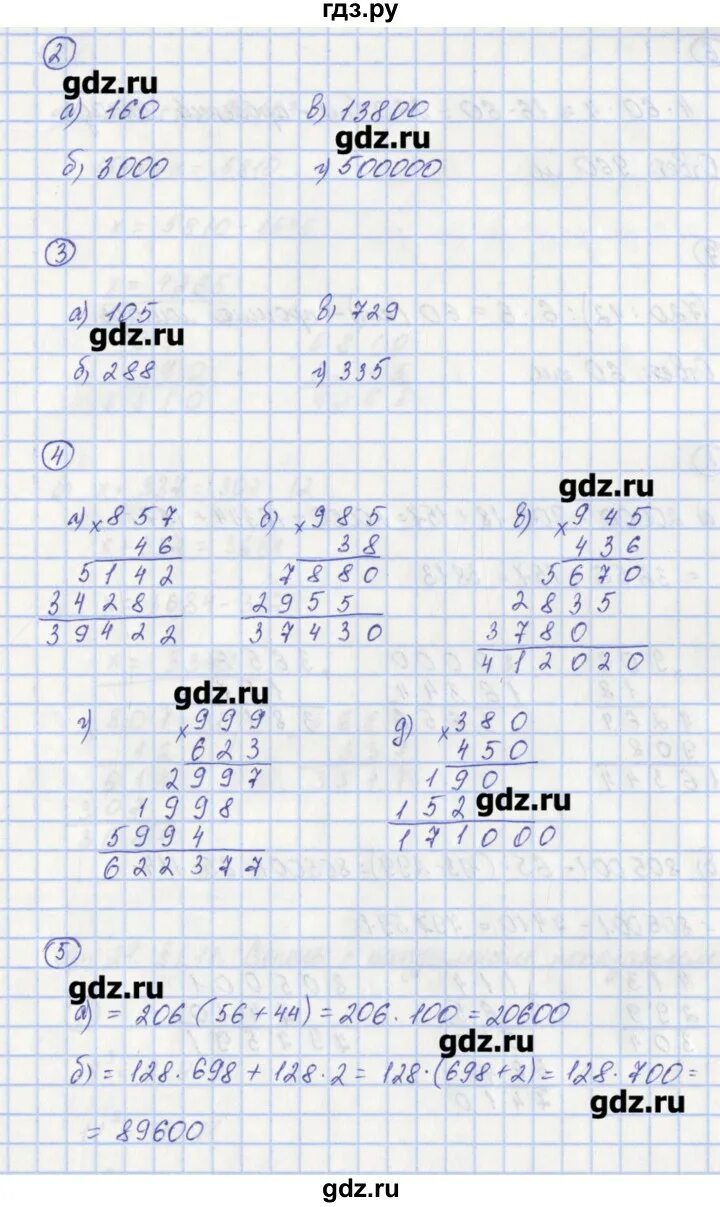 гдз.ру
2
gdz.ru
а) 160 в) 13800
gdz.ru
б) 3000 г) 500000
3
а) 105 в) 729
gdz.ru
б) 288 г) 335
4
gdz.ru
а) × 857 б) × 985 в) × 945
46 38 436
5142 7880 5670
3428 2955 2835
39422 37430 3780
412020
gdz.ru
г) × 999 д) × 380
623 450
2997 190
1998 152 gdz.ru
5994 171000
622377
5
gdz.ru
а) = 206 (56 + 44) = 206 · 100 = 20600
gdz.ru
б) = 128 · 698 + 128 · 2 = 128 · (698 + 2) = 128 · 700 =
gdz.ru
= 89600
gdz.ru